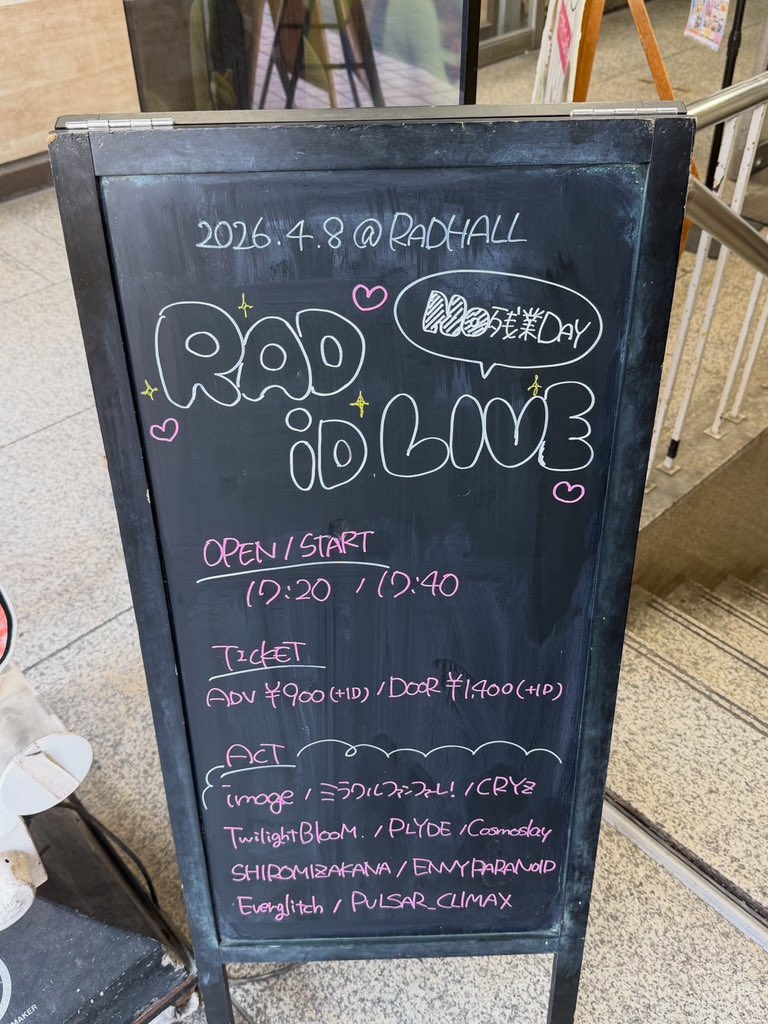 2026.4.8 @ RADHALL
No残業DAY
RAD
iD LIVE
OPEN / START
17:20 / 17:40
TICKET
ADV ¥900(+1D) / DOOR ¥1,400(+1D)
ACT
image / ミラクルファンファーレ! / CRYz
TwilightBlooM. / PLYDE / Cosmoslay
SHIROMIZAKANA / ENVY PARANOID
Everglitch / PULSAR_CLIMAX
MAKER